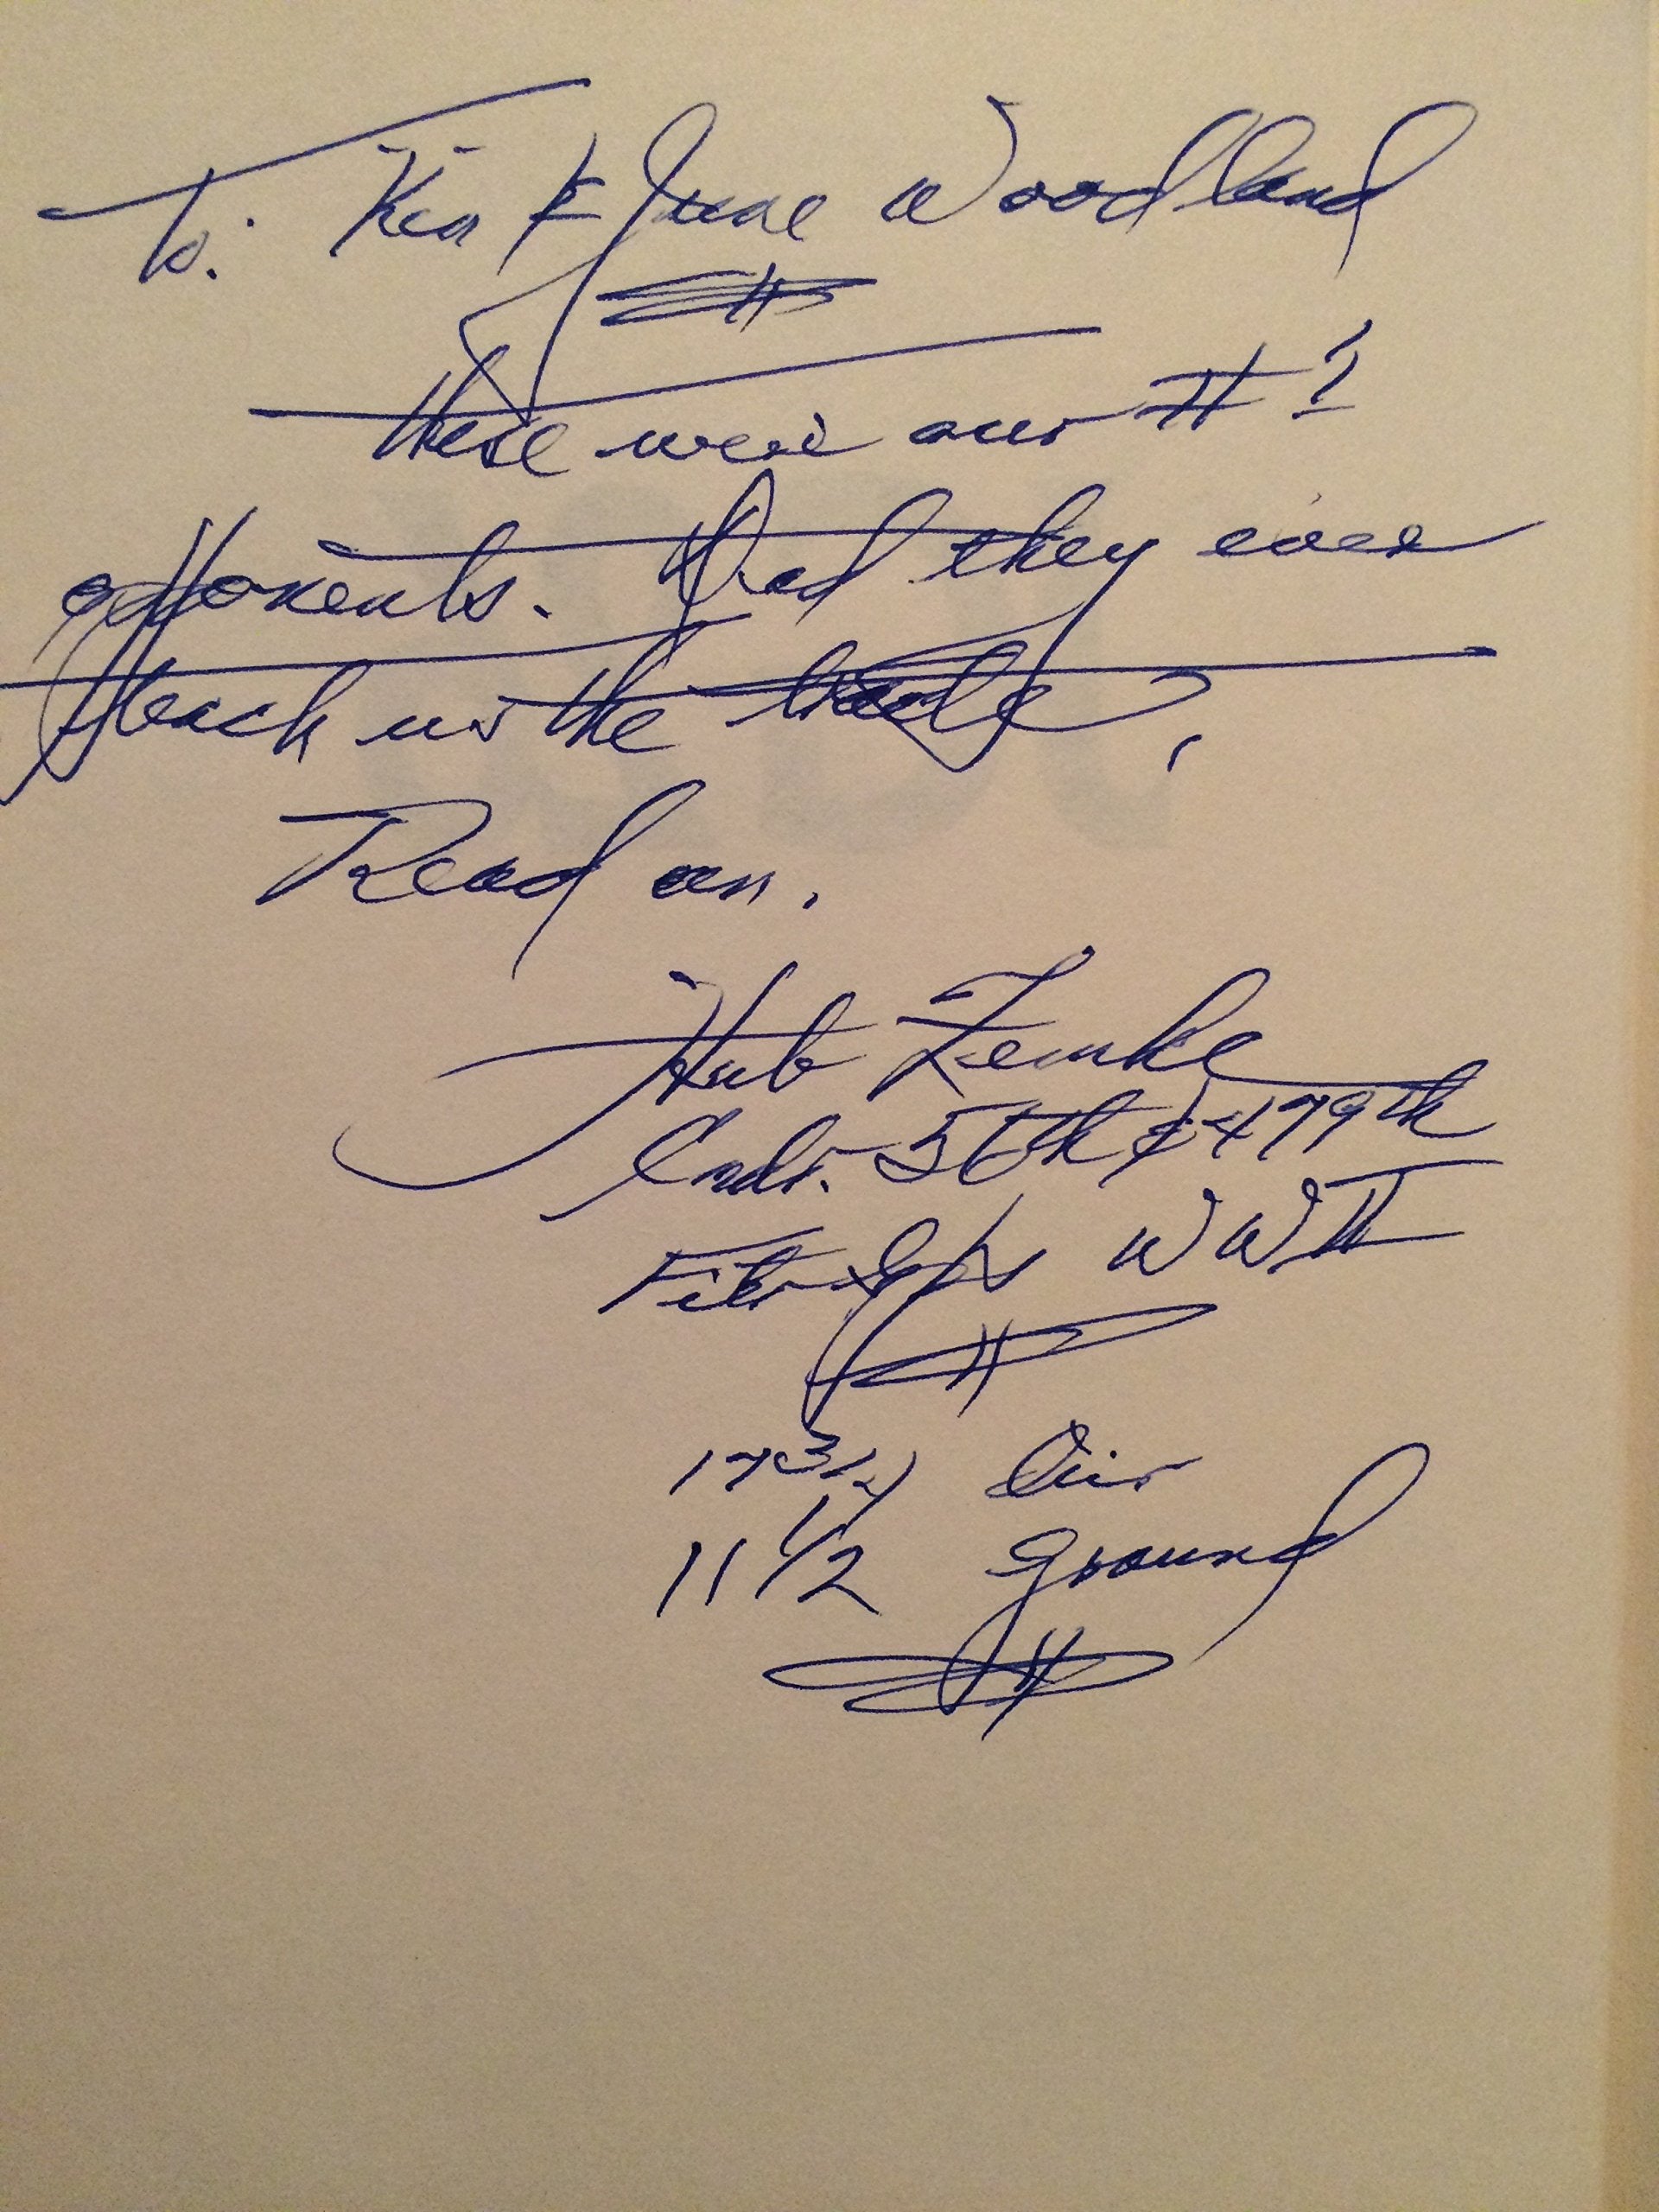 To: Ken & June Woodland
These were our #1
opponents. Did they ever
teach us the
Read on.
Hub Zemke
Cmdr. 56th & 479th
Ftr Gps WWII
17 3/4 Air
11 1/2 ground